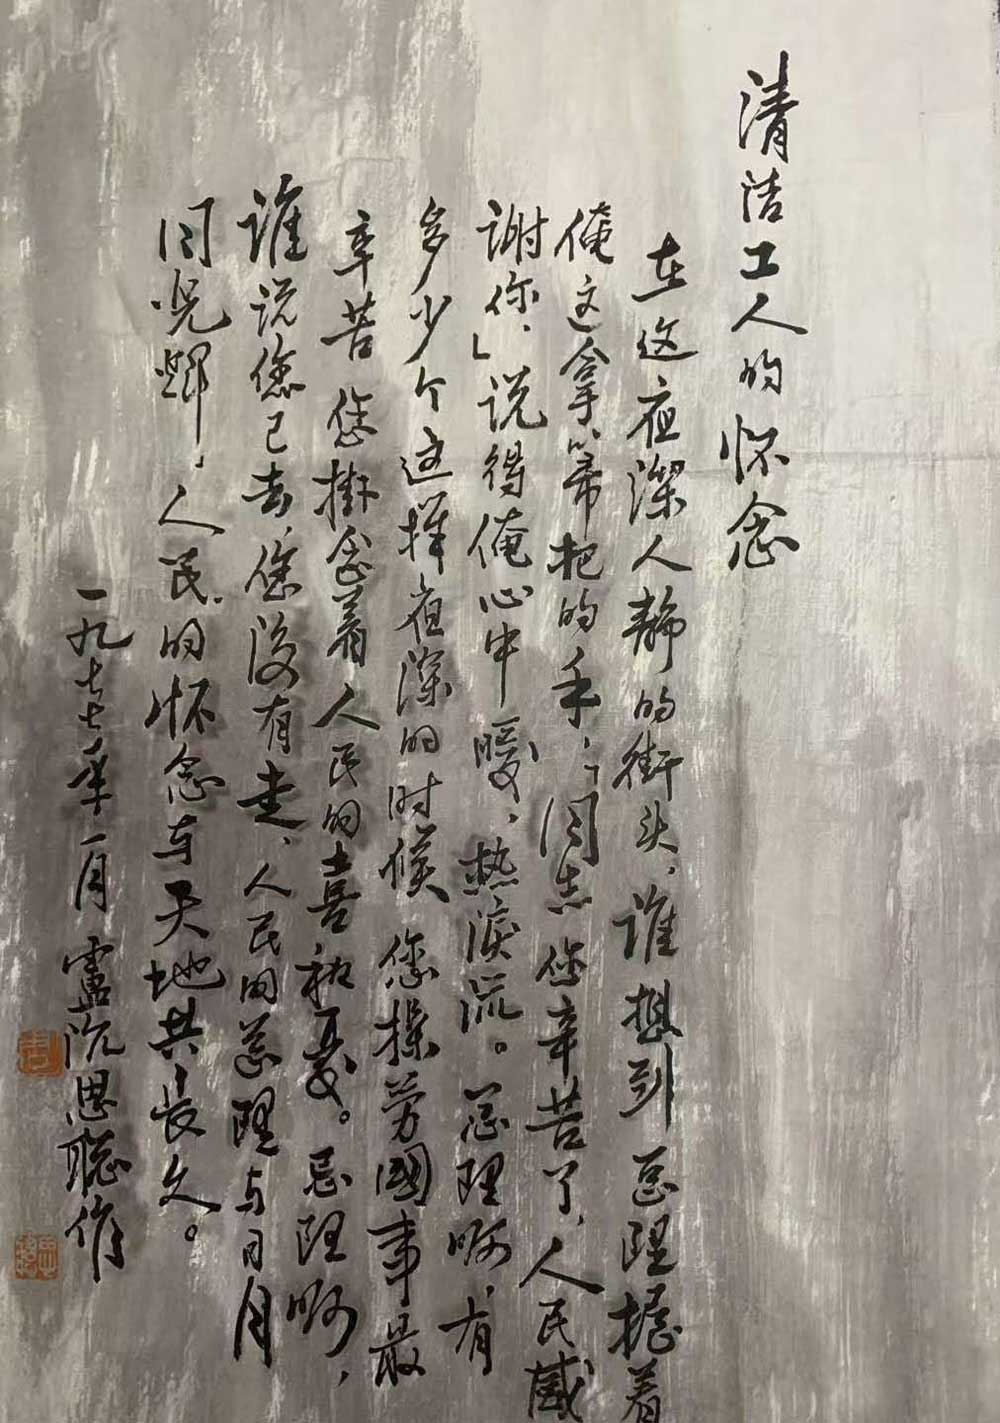 清洁工人的怀念
在这夜深人静的街头，谁想到总理握着
俺这拿笤帚把的手，「同志您辛苦了，人民感
谢你，」说得俺心中暖，热泪流。总理啊，有
多少个这样夜深的时候 您操劳國事最
辛苦 您掛念着人民的喜和憂。总理啊，
谁说您已去，您没有走，人民的总理与日月
同光辉，人民的怀念与天地共長久。
一九七七年一月 盧沉思聪作